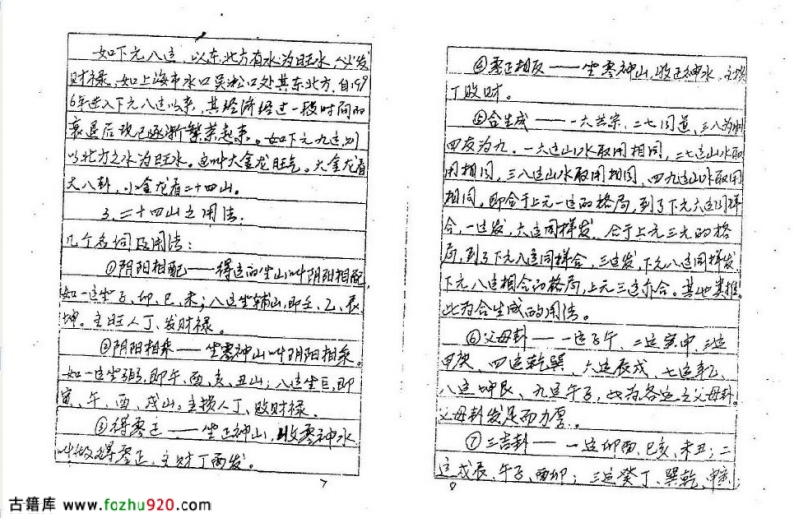 如下元八运，以东北方有水为旺水，必发
财禄。如上海市水口吴淞口处其东北方，自199
6年进入下元八运以来，其经济经过一段时间的
衰退后现已逐渐繁荣起来。如下元九运，则
以北方之水为旺水。这叫大金龙旺气。大金龙看
大八卦，小金龙看二十四山。
3、二十四山之用法：
几个名词及用法：
①阴阳相配——得运的坐山叫阴阳相配，
如一运坐子、卯、巳、未；八运坐辅山，即壬、乙、辰、
坤。主旺人丁、发财禄。
②阴阳相乘——坐零神山叫阴阳相乘。
如一运坐弼，即午、酉、亥、丑山；八运坐巨，即
寅、午、酉、戌山，主损人丁、败财禄。
③得零正——坐正神山，收零神水
叫做得零正，主财丁两发。
7
④零正相反——坐零神山，收正神水，主损
丁败财。
⑤合生成——一六共宗，二七同道，三八为朋
四友为九。一六运山水取用相同，二七运山水取
用相同，三八运山水取用相同，四九运山水取用
相同，即合于上元一运的格局，到了下元六运同样
合，一运发，六运同样发。合于上元三元的格
局，到了下元八运同样合，三运发，下元八运同样发
下元八运相合的格局，上元三运亦合。其他类推。
此为合生成的用法。
⑥父母卦——一运子午、二运寅申、三运
甲庚、四运乾巽、六运辰戌、七运辛乙、
八运坤艮、九运午子，此为各运之父母卦。
父母卦发是而力厚。
⑦三吉卦——一运卯酉、巳亥、未丑；二
运戌辰、午子、酉卯；三运癸丁、巽乾、申寅；
8
古籍库 www.fozhu920.com